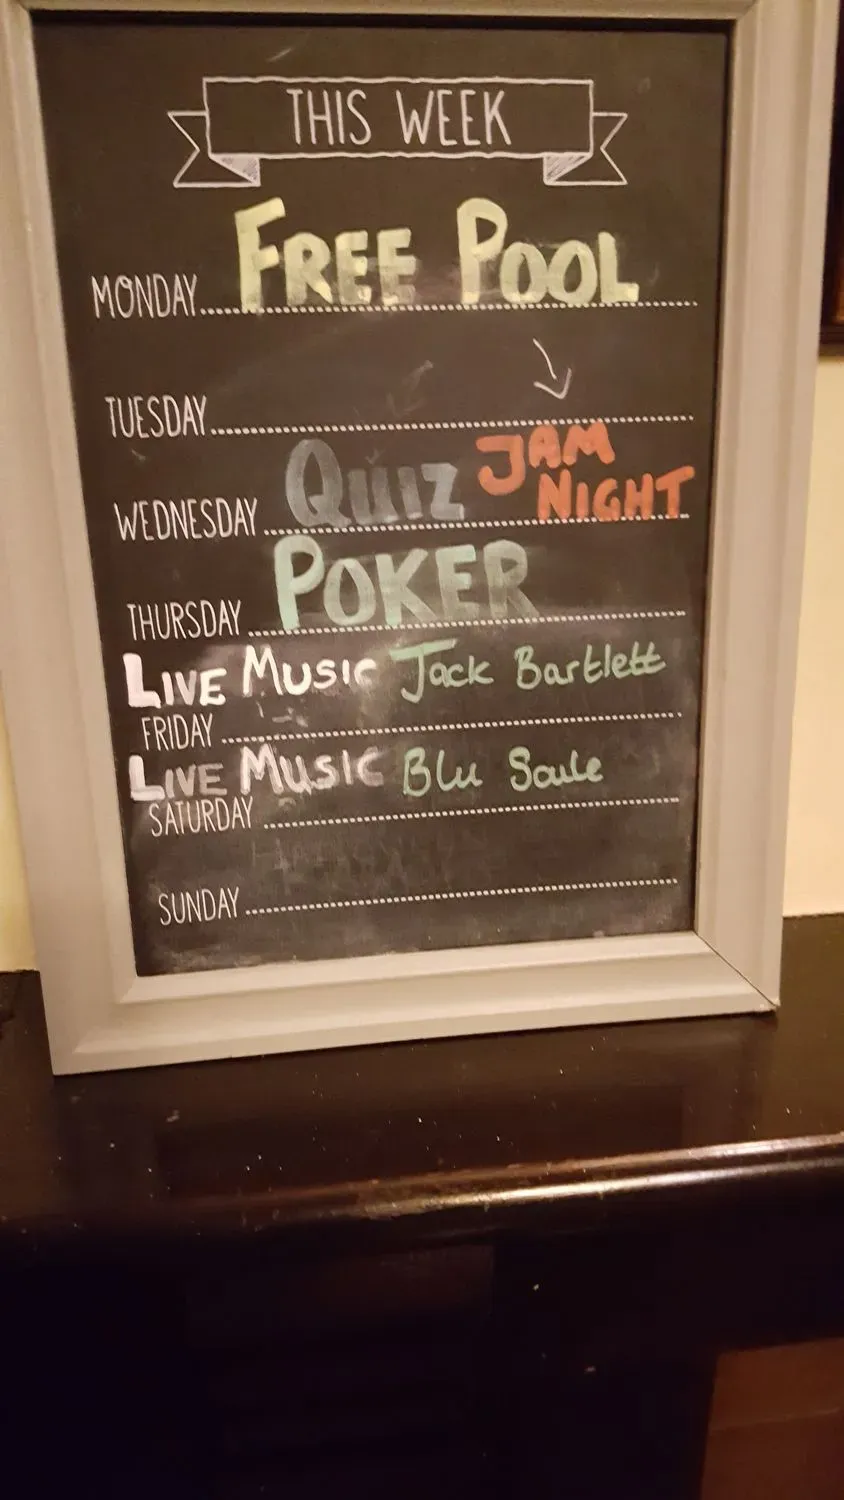 THIS WEEK
MONDAY FREE POOL
TUESDAY
WEDNESDAY QUIZ JAM NIGHT
THURSDAY POKER
LIVE MUSIC Jack Bartlett
FRIDAY
LIVE MUSIC Blu Soule
SATURDAY
SUNDAY